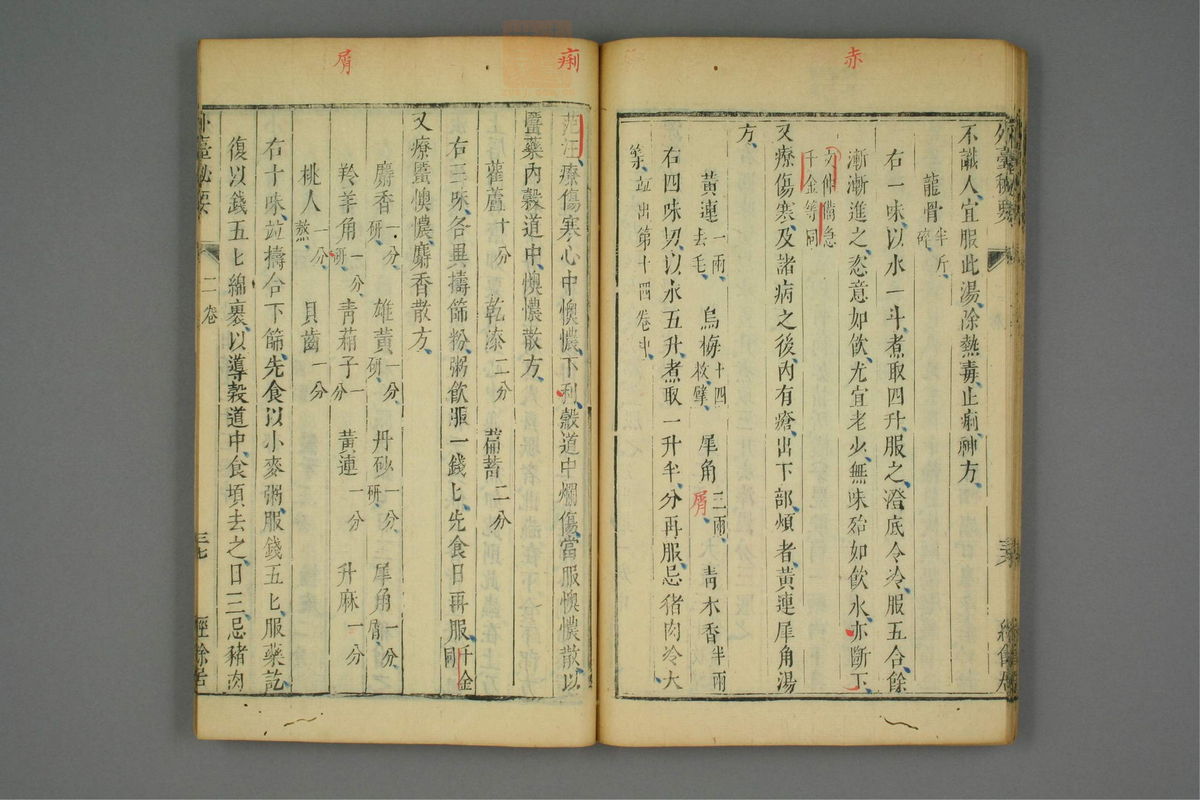 赤
外臺秘要
不識人宜服此湯除熱毒止痢神方
龍骨半斤碎
右一味以水一斗煮取四升服之澄底令冷服五合餘
漸漸進之恣意如飲尤宜老少無味殆如飲水亦斷下
千金等同
又療傷寒及諸病之後內有瘡出下部煩者黃連犀角湯
方
黃連一兩去毛 烏梅十四枚擘 犀角三兩屑 青木香半兩
右四味切以水五升煮取一升半分再服忌豬肉冷水
等並出第十四卷中
痢
屑
范汪療傷寒心中懊憹下利穀道中爛傷當服懊憹散以
䘌藥內穀道中懊憹散方
雚蘆十分 乾漆二分 萹蓄二分
右三味各異擣篩粉粥飲服一錢匕先食日再服千金同
又療䘌懊憹麝香散方
麝香一分研 雄黃一分研 丹砂一分研 犀角一分屑
羚羊角一分研 青葙子一分 黃連一分 升麻一分
桃人一分熬 貝齒一分
右十味並擣合下篩先食以小麥粥服錢五匕服藥訖
復以錢五匕綿裹以導穀道中食頃去之日三忌豬肉
外臺秘要 二卷 三七 經餘居